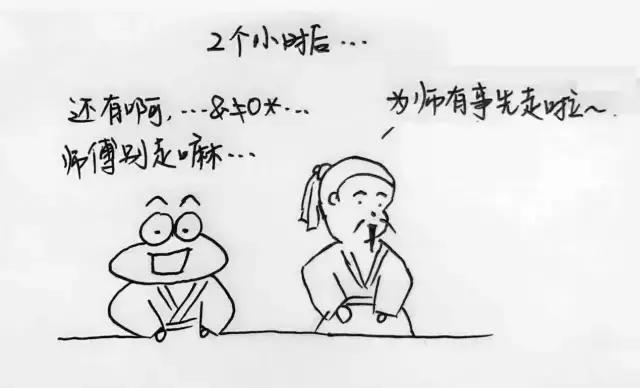 2个小时后...
还有啊,...&≠0*...
师傅别走嘛...
为师有事先走啦~